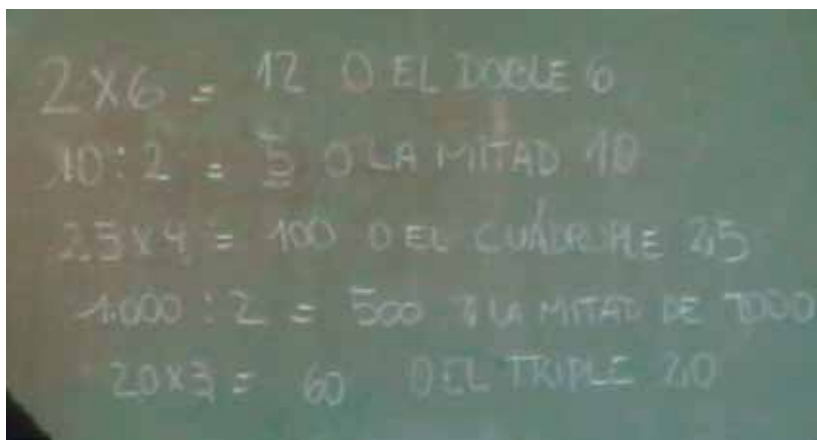 2X6 = 12 O EL DOBLE 6
10:2 = 5 O LA MITAD 10
25X4 = 100 O EL CUÁDRUPLE 25
1.000:2 = 500 O LA MITAD DE 1000
20X3 = 60 O EL TRIPLE 20